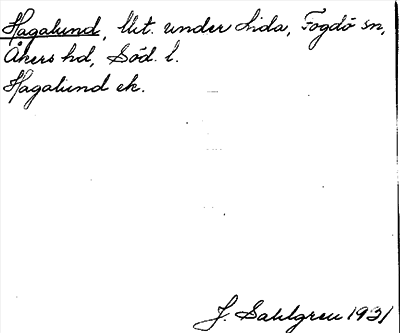 Hagalund, lht. under Lida, Fogdö sn,
Åkers hd, Söd. l.
Hagalund ek.
J. Sahlgren 1931